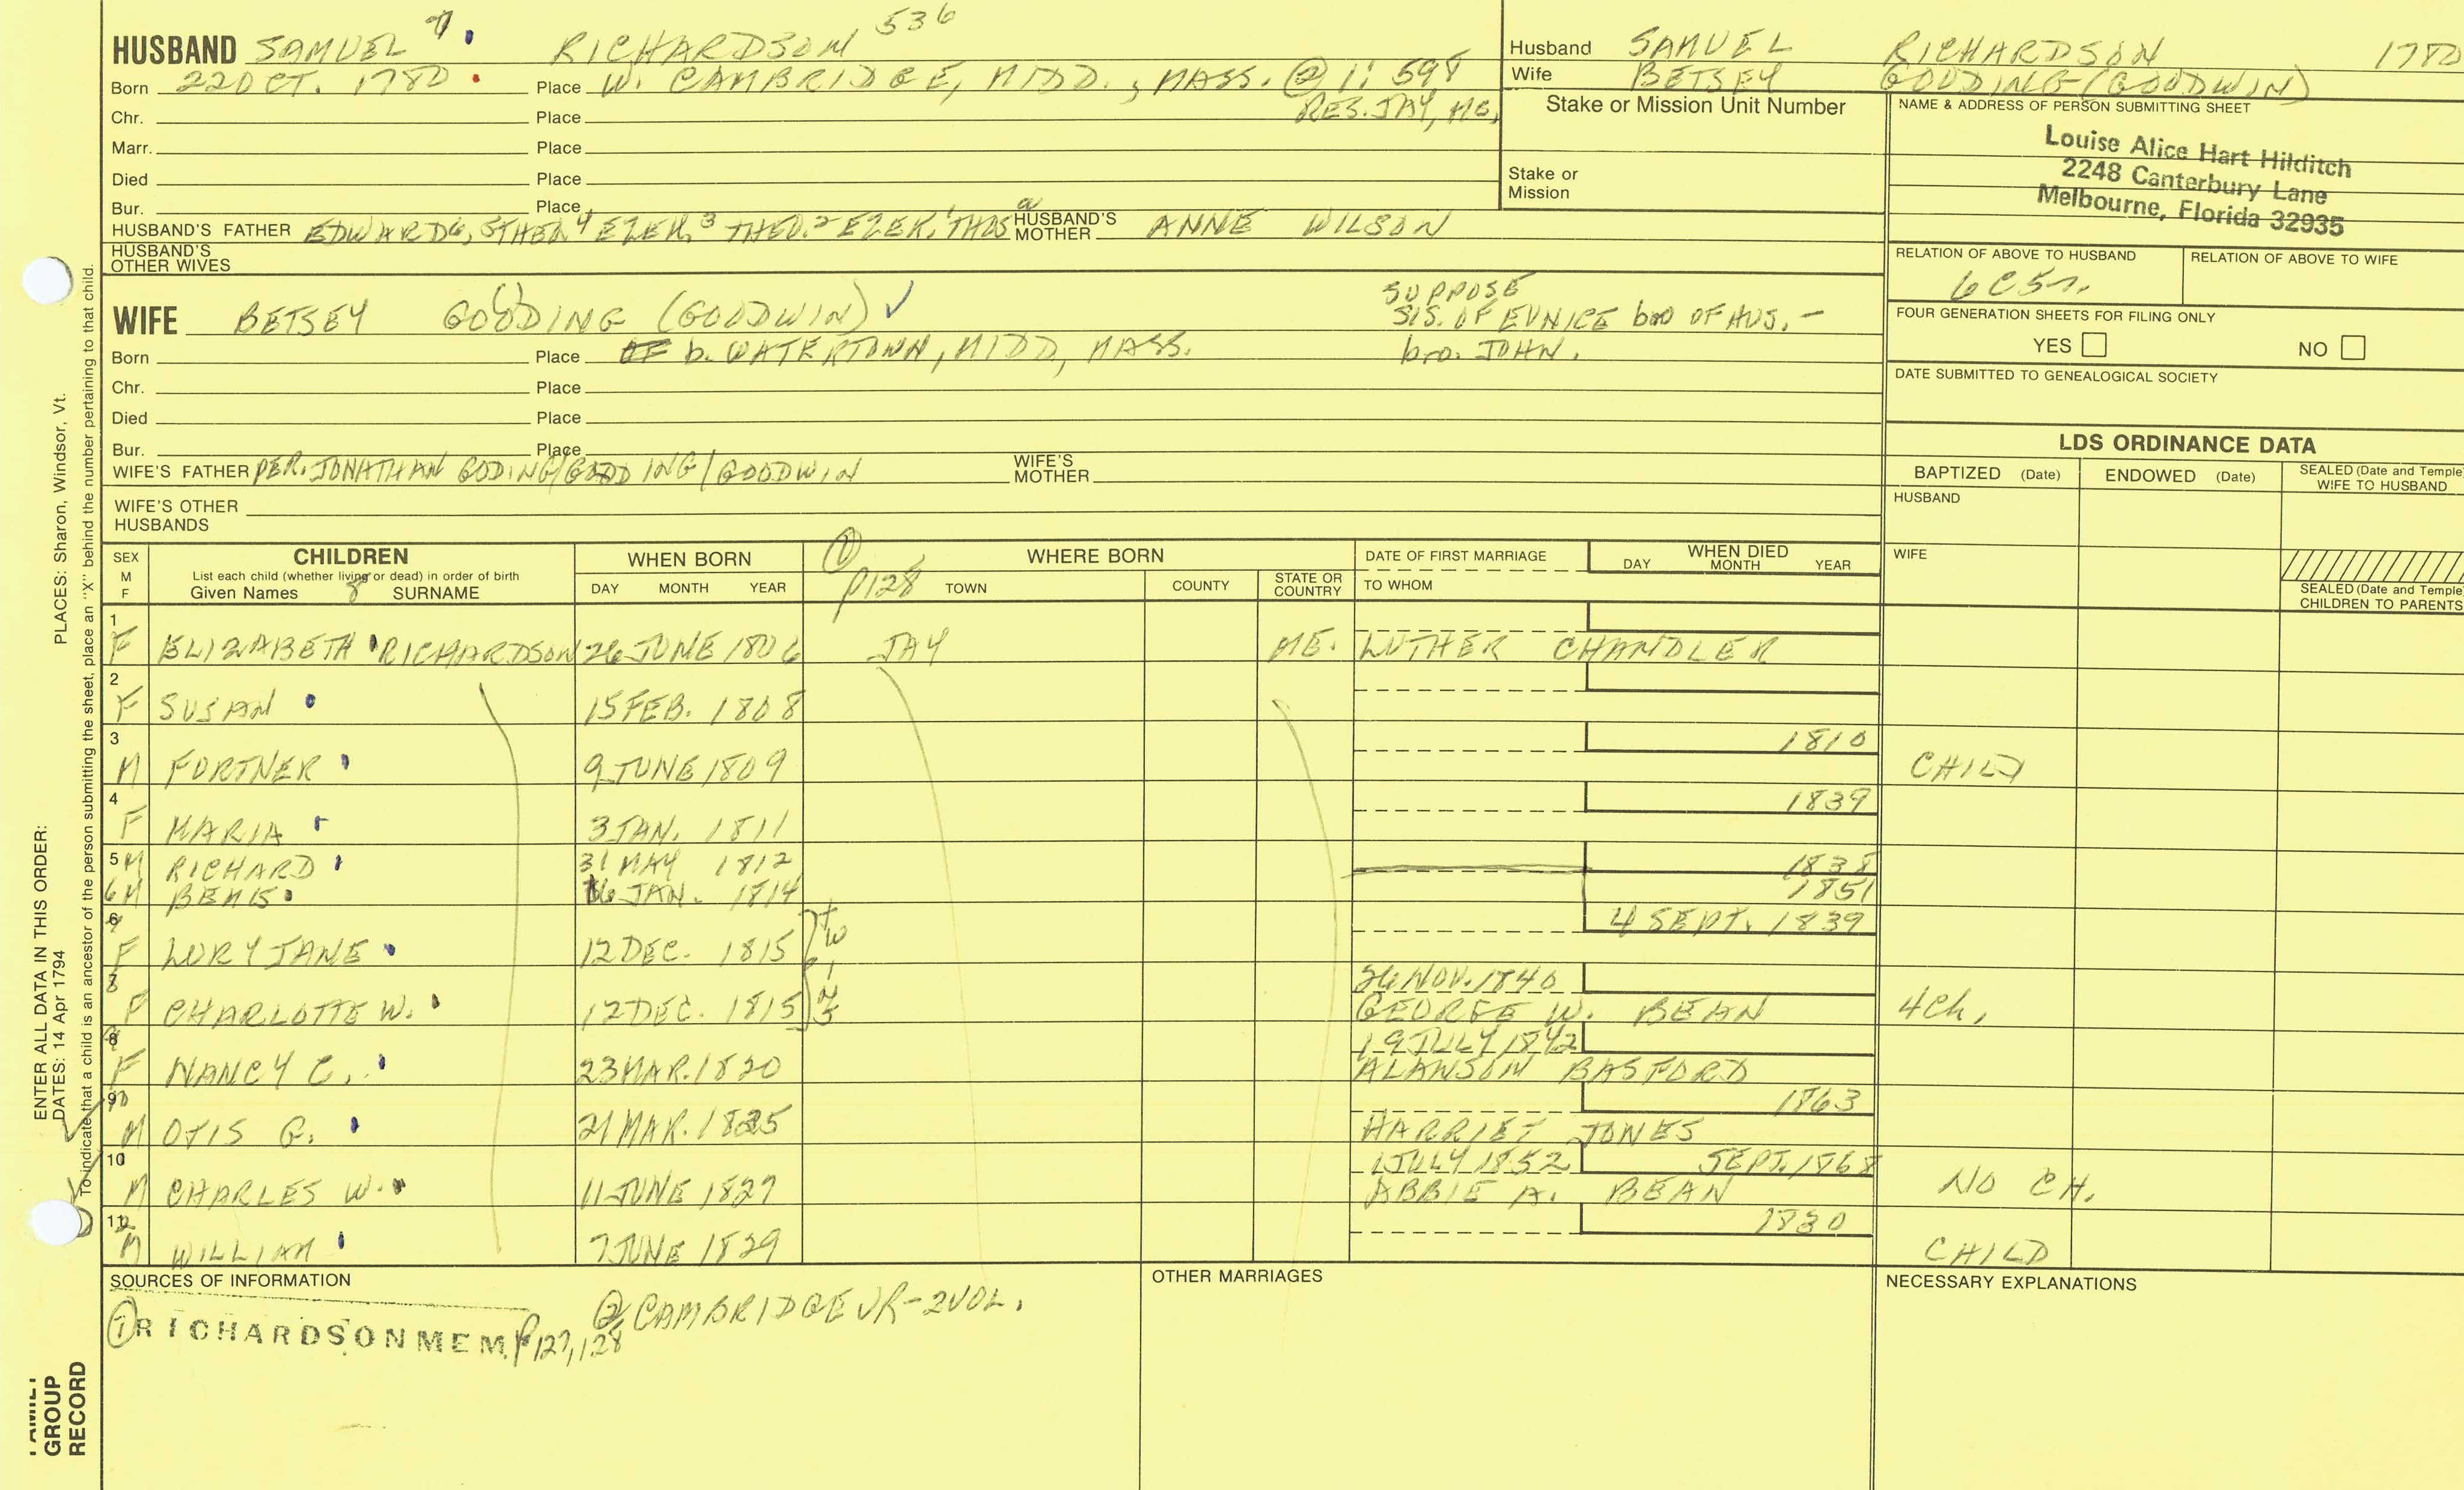 HUSBAND SAMUEL 7 RICHARDSON 536
Born 22 OCT. 1780 Place W. CAMBRIDGE, MIDD., MASS. @ 1:598
Chr. Place RES. JAY, ME.
Marr. Place
Died Place
Bur. Place
HUSBAND'S FATHER EDWARD6, 5THEO, 4 EZEK, 3 THEO, 2 EZEK, 1THOS HUSBAND'S MOTHER ANNE WILSON
HUSBAND'S OTHER WIVES
WIFE BETSEY GOODING (GOODWIN) ✓
SUPPOSE
SIS. OF EUNICE bro OF HUS. –
bro. JOHN.
Born Place OF b. WATERTOWN, MIDD, MASS.
Chr. Place
Died Place
Bur. Place
WIFE'S FATHER PER. JONATHAN GODING/GOODING/GOODWIN WIFE'S MOTHER
WIFE'S OTHER HUSBANDS
Husband SAMUEL RICHARDSON 1780
Wife BETSEY GOODING (GOODWIN)
Stake or Mission Unit Number
Stake or Mission
NAME & ADDRESS OF PERSON SUBMITTING SHEET
Louise Alice Hart Hilditch
2248 Canterbury Lane
Melbourne, Florida 32935
RELATION OF ABOVE TO HUSBAND RELATION OF ABOVE TO WIFE
6C5r.
FOUR GENERATION SHEETS FOR FILING ONLY
YES NO
DATE SUBMITTED TO GENEALOGICAL SOCIETY
LDS ORDINANCE DATA
BAPTIZED (Date) ENDOWED (Date) SEALED (Date and Temple) WIFE TO HUSBAND
HUSBAND
WIFE
SEALED (Date and Temple) CHILDREN TO PARENTS
SEX M F
CHILDREN
List each child (whether living or dead) in order of birth
Given Names 8 SURNAME
WHEN BORN
DAY MONTH YEAR
① p128
WHERE BORN
TOWN COUNTY STATE OR COUNTRY
DATE OF FIRST MARRIAGE
TO WHOM
WHEN DIED
DAY MONTH YEAR
1 F ELIZABETH RICHARDSON 26 JUNE 1806 JAY ME. LUTHER CHANDLER
2 F SUSAN 15 FEB. 1808
3 M FORTNER 9 JUNE 1809 1810 CHILD
4 F MARIA 3 JAN. 1811 1839
5 M RICHARD 31 MAY 1812 1838
6 M BEMIS 16 JAN. 1814 1851
F LURY JANE 12 DEC. 1815 4 SEPT. 1839
8 F CHARLOTTE W. 12 DEC. 1815 26 NOV. 1840 GEORGE W. BEAN 4 Ch.
F NANCY C. 23 MAR. 1820 19 JULY 1842 ALANSON BASFORD
M OTIS G. 21 MAR. 1825 HARRIET JONES 1863
10 M CHARLES W. 11 JUNE 1827 1 JULY 1852 ABBIE A. BEAN SEPT. 1868 NO CH.
M WILLIAM 7 JUNE 1829 1830 CHILD
SOURCES OF INFORMATION
① RICHARDSON MEM. p127, 128
② CAMBRIDGE VR – 2 VOL.
OTHER MARRIAGES
NECESSARY EXPLANATIONS
ENTER ALL DATA IN THIS ORDER:
DATES: 14 Apr 1794
PLACES: Sharon, Windsor, Vt.
To indicate that a child is an ancestor of the person submitting the sheet, place an "X" behind the number pertaining to that child.
FAMILY
GROUP
RECORD